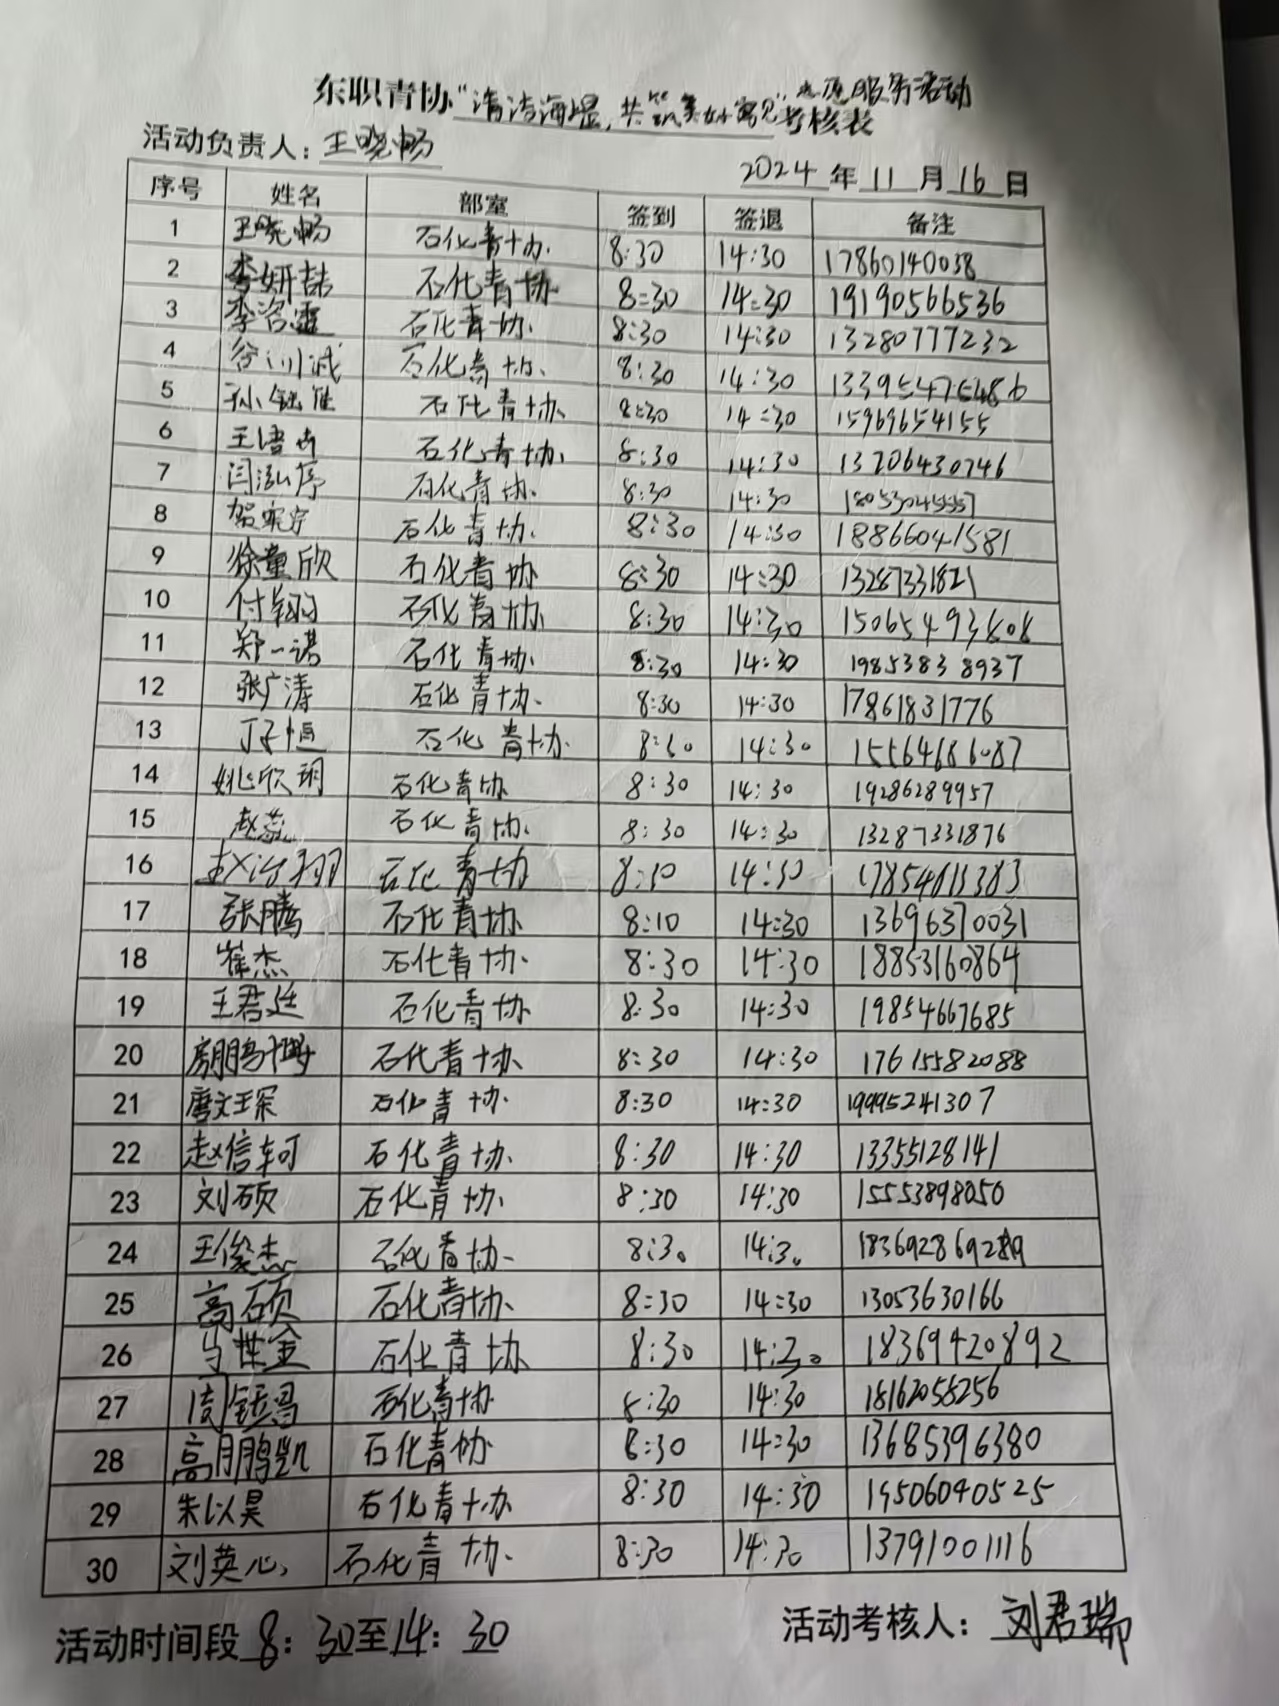 东职青协“清洁海堤，共筑美好窝儿”志愿服务活动考核表
活动负责人：王晓畅
2024年11月16日
序号 姓名 部室 签到 签退 备注
1 王晓畅 石化青协. 8:30 14:30 17860140038
2 李妍喆 石化青协 8:30 14:30 19190566536
3 李洺霏 石化青协. 8:30 14:30 13280777232
4 谷川诚 石化青协. 8:30 14:30 13395475486
5 孙铭佳 石化青协 8:30 14:30 15969654155
6 王语卉 石化青协. 8:30 14:30 13206430746
7 闫泓序 石化青协. 8:30 14:30 18053045557
8 贺宪宇 石化青协. 8:30 14:30 18866041581
9 徐童欣 石化青协 8:30 14:30 13287331821
10 付翱 石化青协 8:30 14:30 15065493808
11 郑一诺 石化青协. 8:30 14:30 19853838937
12 张广涛 石化青协. 8:30 14:30 17861831776
13 丁子恒 石化青协. 8:30 14:30 15564686087
14 姚欣玥 石化青协 8:30 14:30 19286289957
15 赵蕊 石化青协. 8:30 14:30 13287331876
16 赵治翔 石化青协 8:10 14:30 17854611383
17 张腾 石化青协 8:10 14:30 13696370031
18 崔杰 石化青协. 8:30 14:30 18853160864
19 王君廷 石化青协 8:30 14:30 19854667685
20 房鹏博 石化青协 8:30 14:30 17615582088
21 唐文琛 石化青协. 8:30 14:30 19995241307
22 赵信轲 石化青协. 8:30 14:30 13355128141
23 刘硕 石化青协. 8:30 14:30 15553898050
24 王俊杰 石化青协. 8:30 14:30
25 高硕 石化青协. 8:30 14:30 13053630166
26 马世金 石化青协 8:30 14:30 18369420892
27 周钰昌 石化青协 8:30 14:30 18162058256
28 高鹏凯 石化青协 8:30 14:30 13685396380
29 朱以昊 石化青协 8:30 14:30 19506040525
30 刘英心 石化青协. 8:30 14:30 13791001116
活动时间段 8：30至14：30
活动考核人：刘君瑞